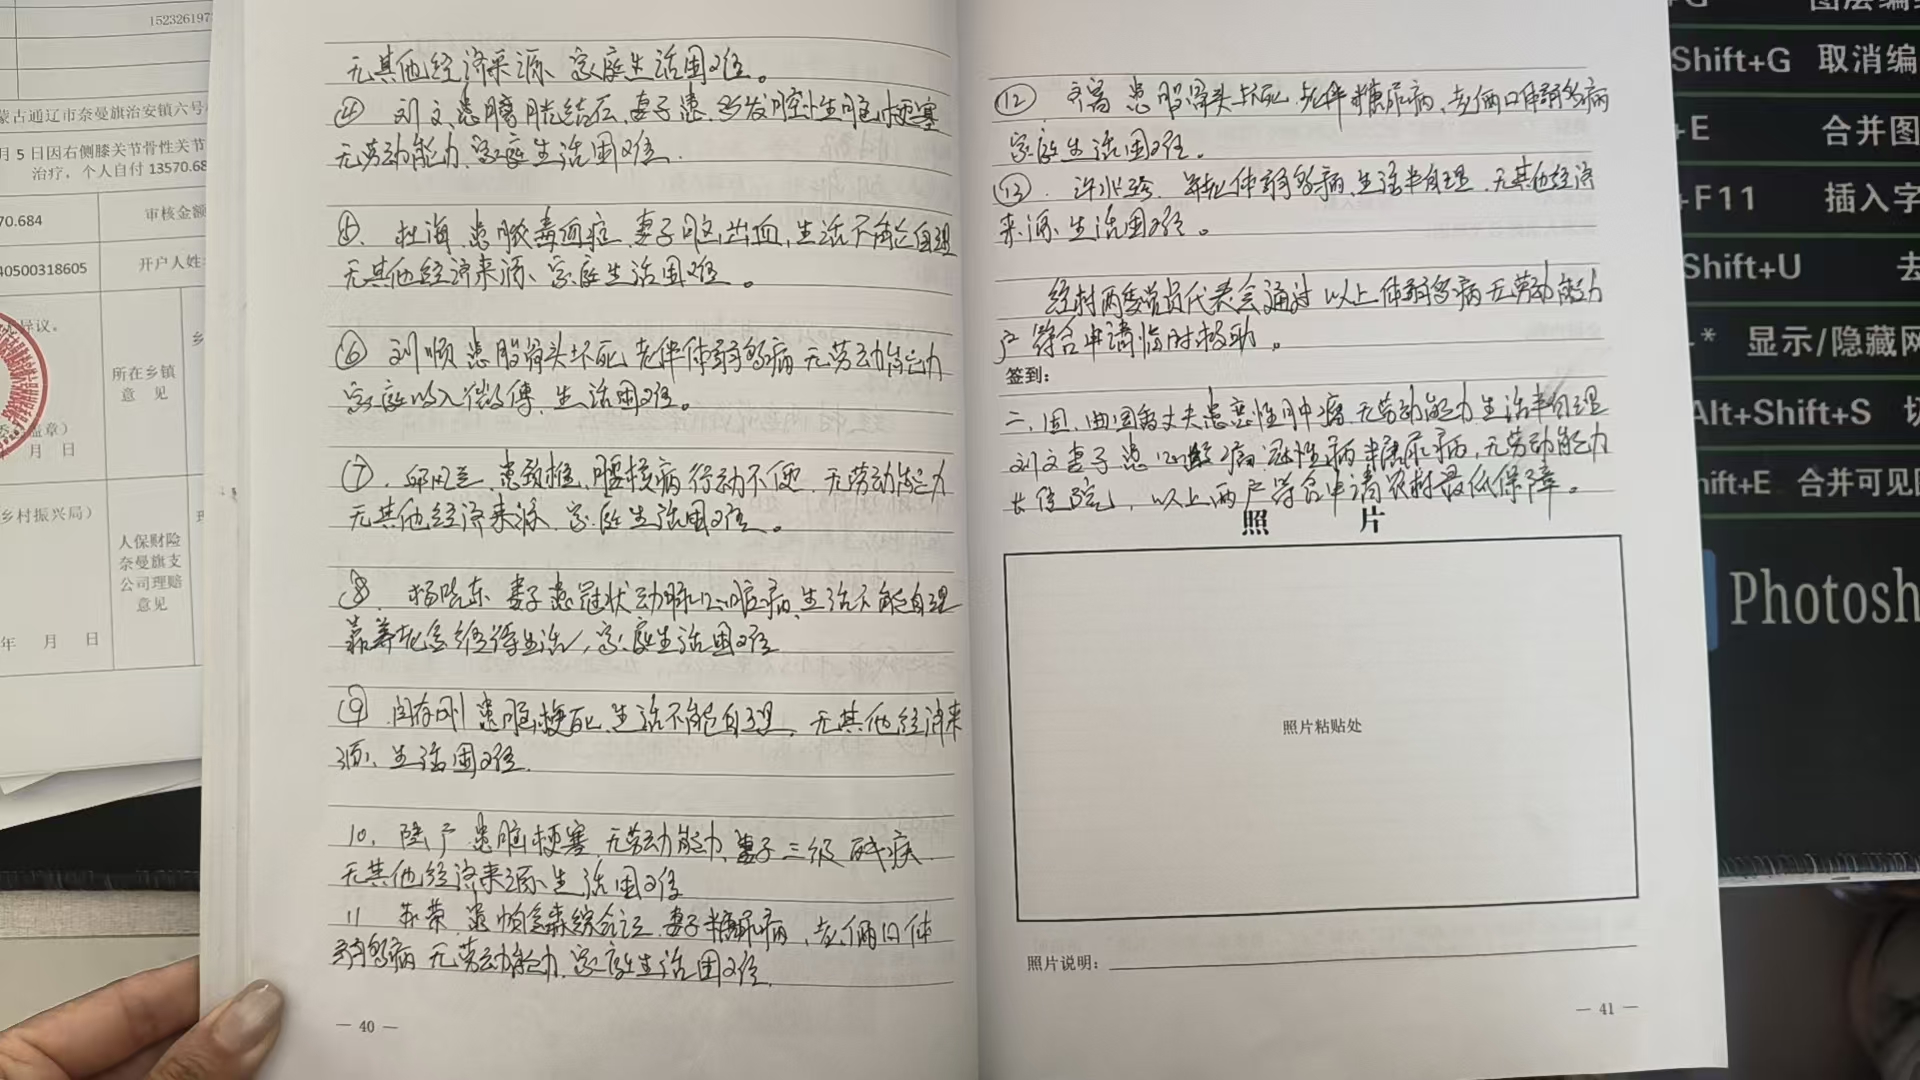 1523261973
蒙古通辽市奈曼旗治安镇六号
月 5 日因右侧膝关节骨性关节
治疗，个人自付 13570.68
70.684
审核金额
40500318605
开户人姓
异议。
所在乡镇
意 见
盖章）
月 日
乡村振兴局）
人保财险
奈曼旗支
公司理赔
意见
年 月 日
无其他经济来源、家庭生活困难。
④ 刘文患膀胱结石，妻子患，多发腔性脑梗塞
无劳动能力，家庭生活困难.
⑤. 杜海，患脓毒血症，妻子脑出血，生活不能自理
无其他经济来源、家庭生活困难。
⑥ 刘顺 患股骨头坏死，老伴体弱多病 无劳动能力
家庭收入微薄，生活困难。
⑦. 邱凤兰，患颈椎，腰椎病行动不便，无劳动能力
无其他经济来源，家庭生活困难。
⑧. 杨晓东 妻子患冠状动脉心脏病，生活不能自理
靠养老金维持生活，家庭生活困难
⑨. 闫存刚 患脑梗死，生活不能自理，无其他经济来
源、生活困难.
10. 陆广 患脑梗塞 无劳动能力，妻子三级残疾.
无其他经济来源、生活困难
11 苏荣，患帕金森综合证，妻子糖尿病，老俩口体
弱多病 无劳动能力，家庭生活困难.
— 40 —
⑫. 患股骨头坏死，老伴糖尿病，老俩口体弱多病
家庭生活困难。
⑬. 年老体弱多病，生活半自理，无其他经济
来源、生活困难。
经村两委党员代表会通过 以上体弱多病无劳动能力
户符合申请临时救助。
签到:
二. 丈夫患恶性肿瘤，无劳动能力 生活半自理
刘文妻子患 病 糖尿病，无劳动能力
长住院，以上两户符合申请农村最低保障。
照 片
照片粘贴处
照片说明:
— 41 —
+G
Shift+G 取消编
+E 合并图
+F11 插入字
Shift+U 去
显示/隐藏网
Alt+Shift+S 切
Shift+E 合并可见图
Photosh